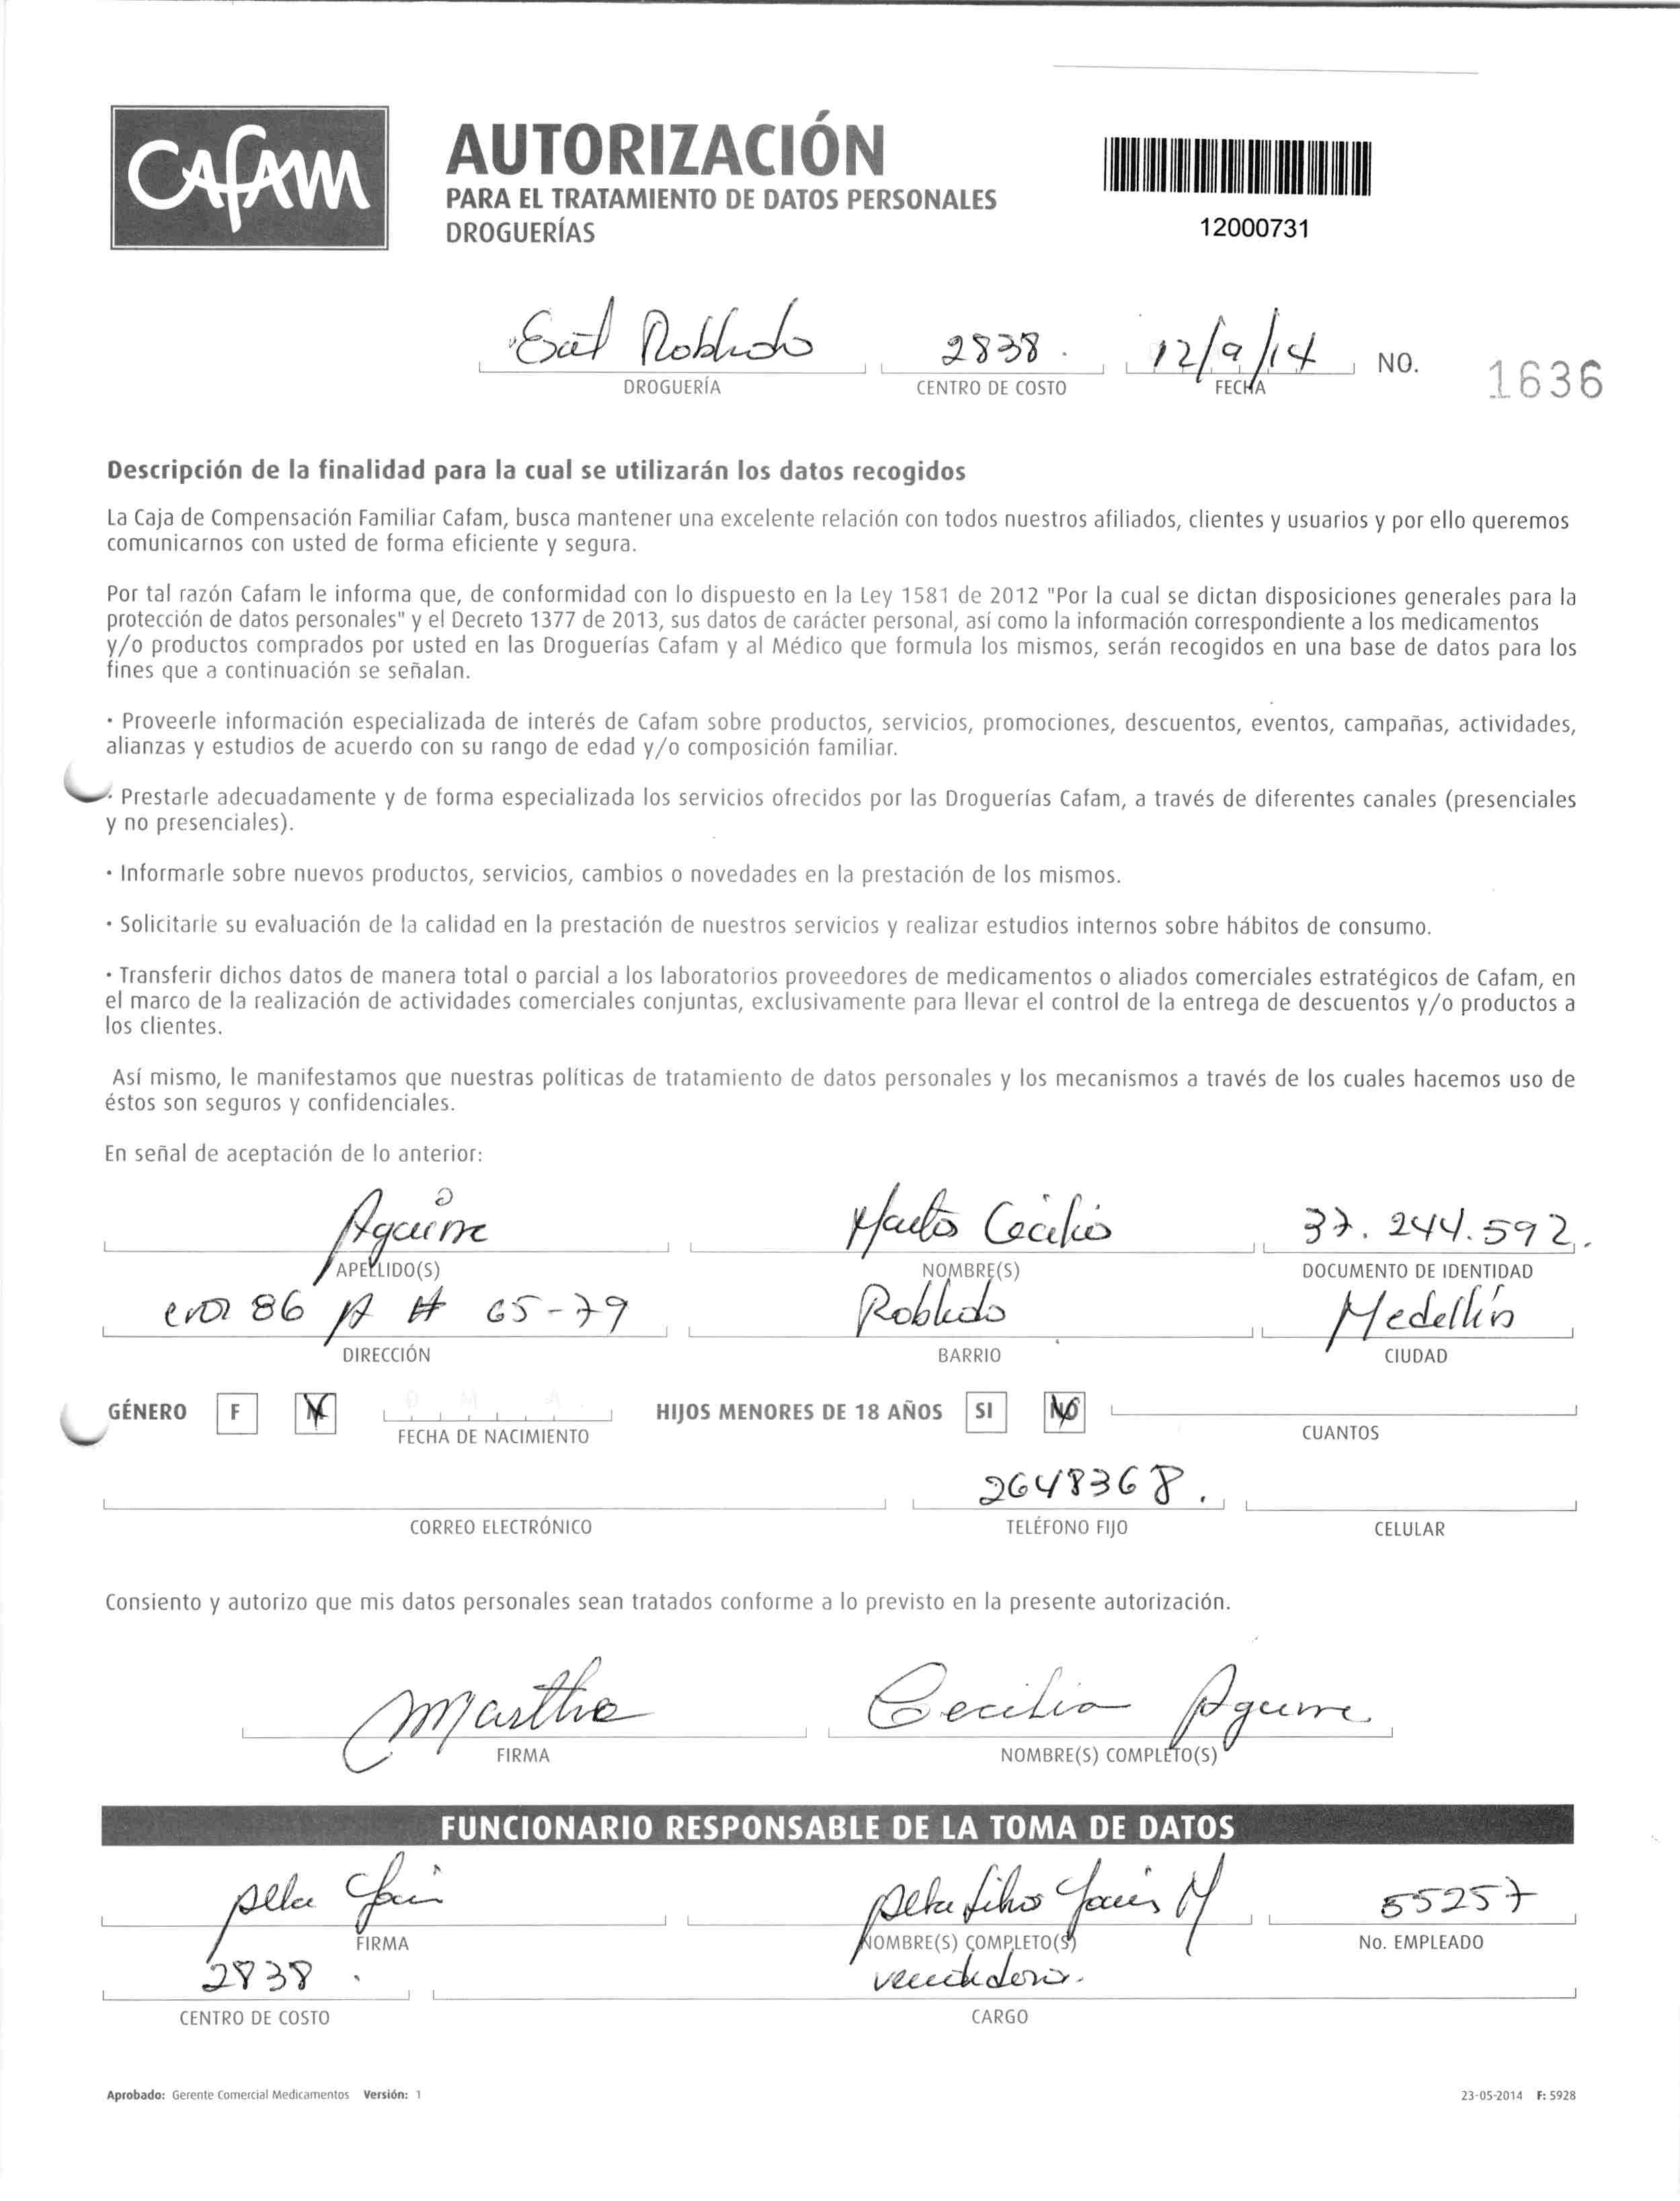 CAfAM
AUTORIZACIÓN
PARA EL TRATAMIENTO DE DATOS PERSONALES
DROGUERÍAS
12000731
Robledo 2838. 12/9/14 NO. 1636
DROGUERÍA CENTRO DE COSTO FECHA
Descripción de la finalidad para la cual se utilizarán los datos recogidos
La Caja de Compensación Familiar Cafam, busca mantener una excelente relación con todos nuestros afiliados, clientes y usuarios y por ello queremos
comunicarnos con usted de forma eficiente y segura.
Por tal razón Cafam le informa que, de conformidad con lo dispuesto en la Ley 1581 de 2012 "Por la cual se dictan disposiciones generales para la
protección de datos personales" y el Decreto 1377 de 2013, sus datos de carácter personal, así como la información correspondiente a los medicamentos
y/o productos comprados por usted en las Droguerías Cafam y al Médico que formula los mismos, serán recogidos en una base de datos para los
fines que a continuación se señalan.
· Proveerle información especializada de interés de Cafam sobre productos, servicios, promociones, descuentos, eventos, campañas, actividades,
alianzas y estudios de acuerdo con su rango de edad y/o composición familiar.
· Prestarle adecuadamente y de forma especializada los servicios ofrecidos por las Droguerías Cafam, a través de diferentes canales (presenciales
y no presenciales).
· Informarle sobre nuevos productos, servicios, cambios o novedades en la prestación de los mismos.
· Solicitarle su evaluación de la calidad en la prestación de nuestros servicios y realizar estudios internos sobre hábitos de consumo.
· Transferir dichos datos de manera total o parcial a los laboratorios proveedores de medicamentos o aliados comerciales estratégicos de Cafam, en
el marco de la realización de actividades comerciales conjuntas, exclusivamente para llevar el control de la entrega de descuentos y/o productos a
los clientes.
Así mismo, le manifestamos que nuestras políticas de tratamiento de datos personales y los mecanismos a través de los cuales hacemos uso de
éstos son seguros y confidenciales.
En señal de aceptación de lo anterior:
Aguirre Cecilia 37.244.592.
APELLIDO(S) NOMBRE(S) DOCUMENTO DE IDENTIDAD
cra 86 A # 65-79 Robledo Medellín
DIRECCIÓN BARRIO CIUDAD
GÉNERO F M A M D HIJOS MENORES DE 18 AÑOS SI NO
FECHA DE NACIMIENTO CUANTOS
2648368.
CORREO ELECTRÓNICO TELÉFONO FIJO CELULAR
Consiento y autorizo que mis datos personales sean tratados conforme a lo previsto en la presente autorización.
Martha Cecilia Aguirre
FIRMA NOMBRE(S) COMPLETO(S)
FUNCIONARIO RESPONSABLE DE LA TOMA DE DATOS
M 55257
FIRMA NOMBRE(S) COMPLETO(S) No. EMPLEADO
2838. vendedora.
CENTRO DE COSTO CARGO
Aprobado: Gerente Comercial Medicamentos Versión: 1 23-05-2014 F: 5928